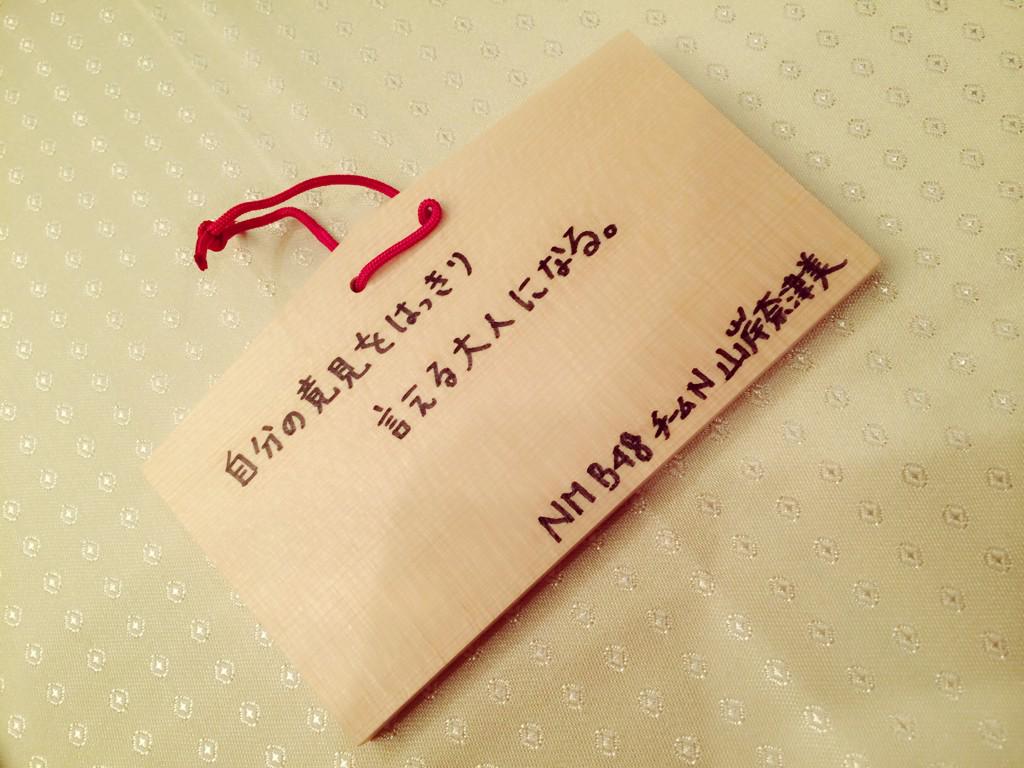 自分の意見をはっきり
言える大人になる。
NMB48 チームN 山岸奈津美